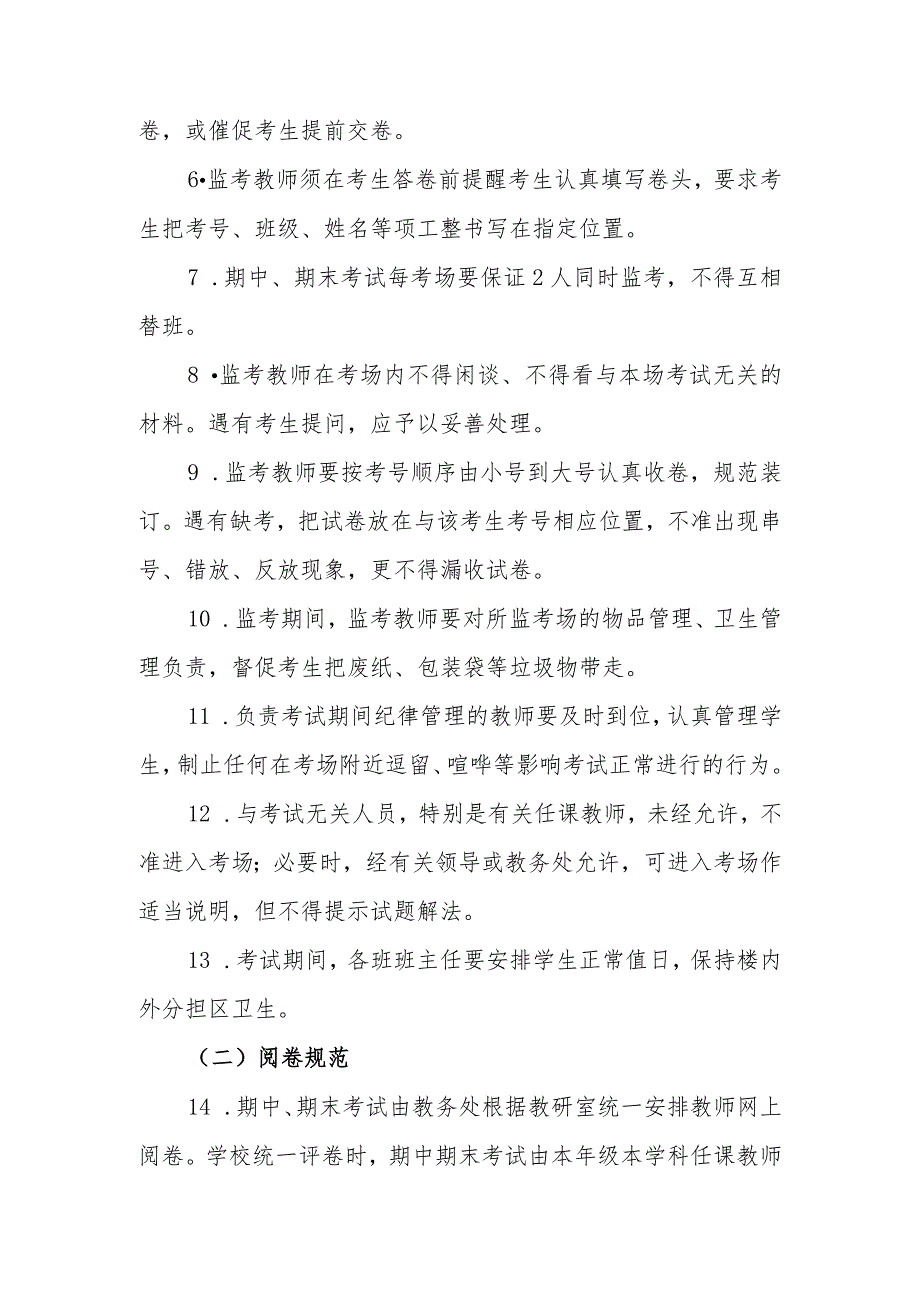 卷，或催促考生提前交卷。
6•监考教师须在考生答卷前提醒考生认真填写卷头，要求考
生把考号、班级、姓名等项工整书写在指定位置。
7 .期中、期末考试每考场要保证 2 人同时监考，不得互相
替班。
8 •监考教师在考场内不得闲谈、不得看与本场考试无关的
材料。遇有考生提问，应予以妥善处理。
9 .监考教师要按考号顺序由小号到大号认真收卷，规范装
订。遇有缺考，把试卷放在与该考生考号相应位置，不准出现串
号、错放、反放现象，更不得漏收试卷。
10 .监考期间，监考教师要对所监考场的物品管理、卫生管
理负责，督促考生把废纸、包装袋等垃圾物带走。
11 .负责考试期间纪律管理的教师要及时到位，认真管理学
生，制止任何在考场附近逗留、喧哗等影响考试正常进行的行为。
12 .与考试无关人员，特别是有关任课教师，未经允许，不
准进入考场；必要时，经有关领导或教务处允许，可进入考场作
适当说明，但不得提示试题解法。
13 .考试期间，各班班主任要安排学生正常值日，保持楼内
外分担区卫生。
（二）阅卷规范
14 .期中、期末考试由教务处根据教研室统一安排教师网上
阅卷。学校统一评卷时，期中期末考试由本年级本学科任课教师